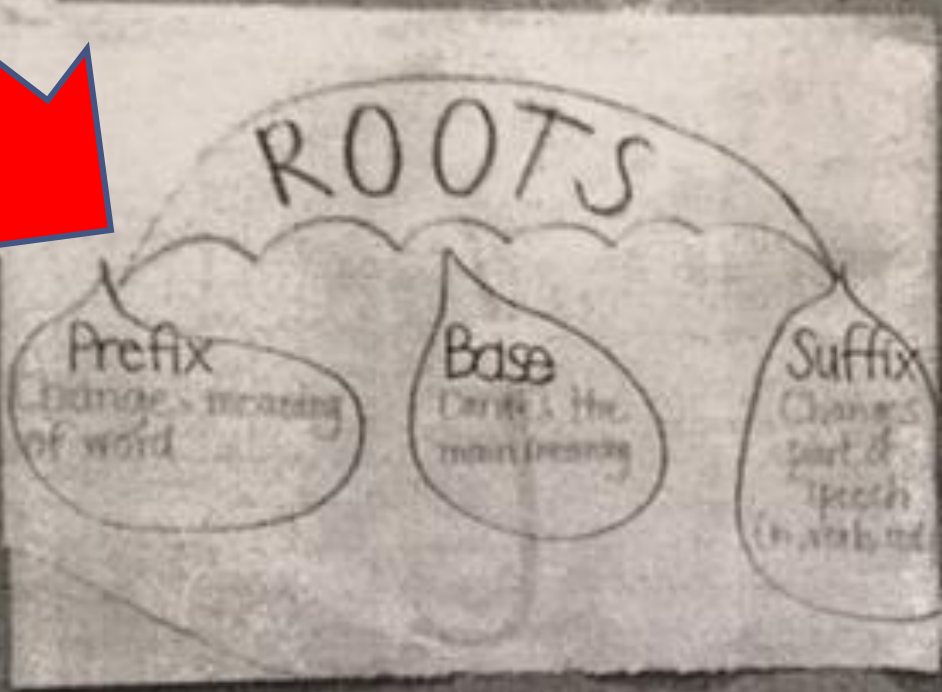 ROOTS
Prefix
Changes meaning
of word
Base
Carries the
main meaning
Suffix
Changes
part of
speech